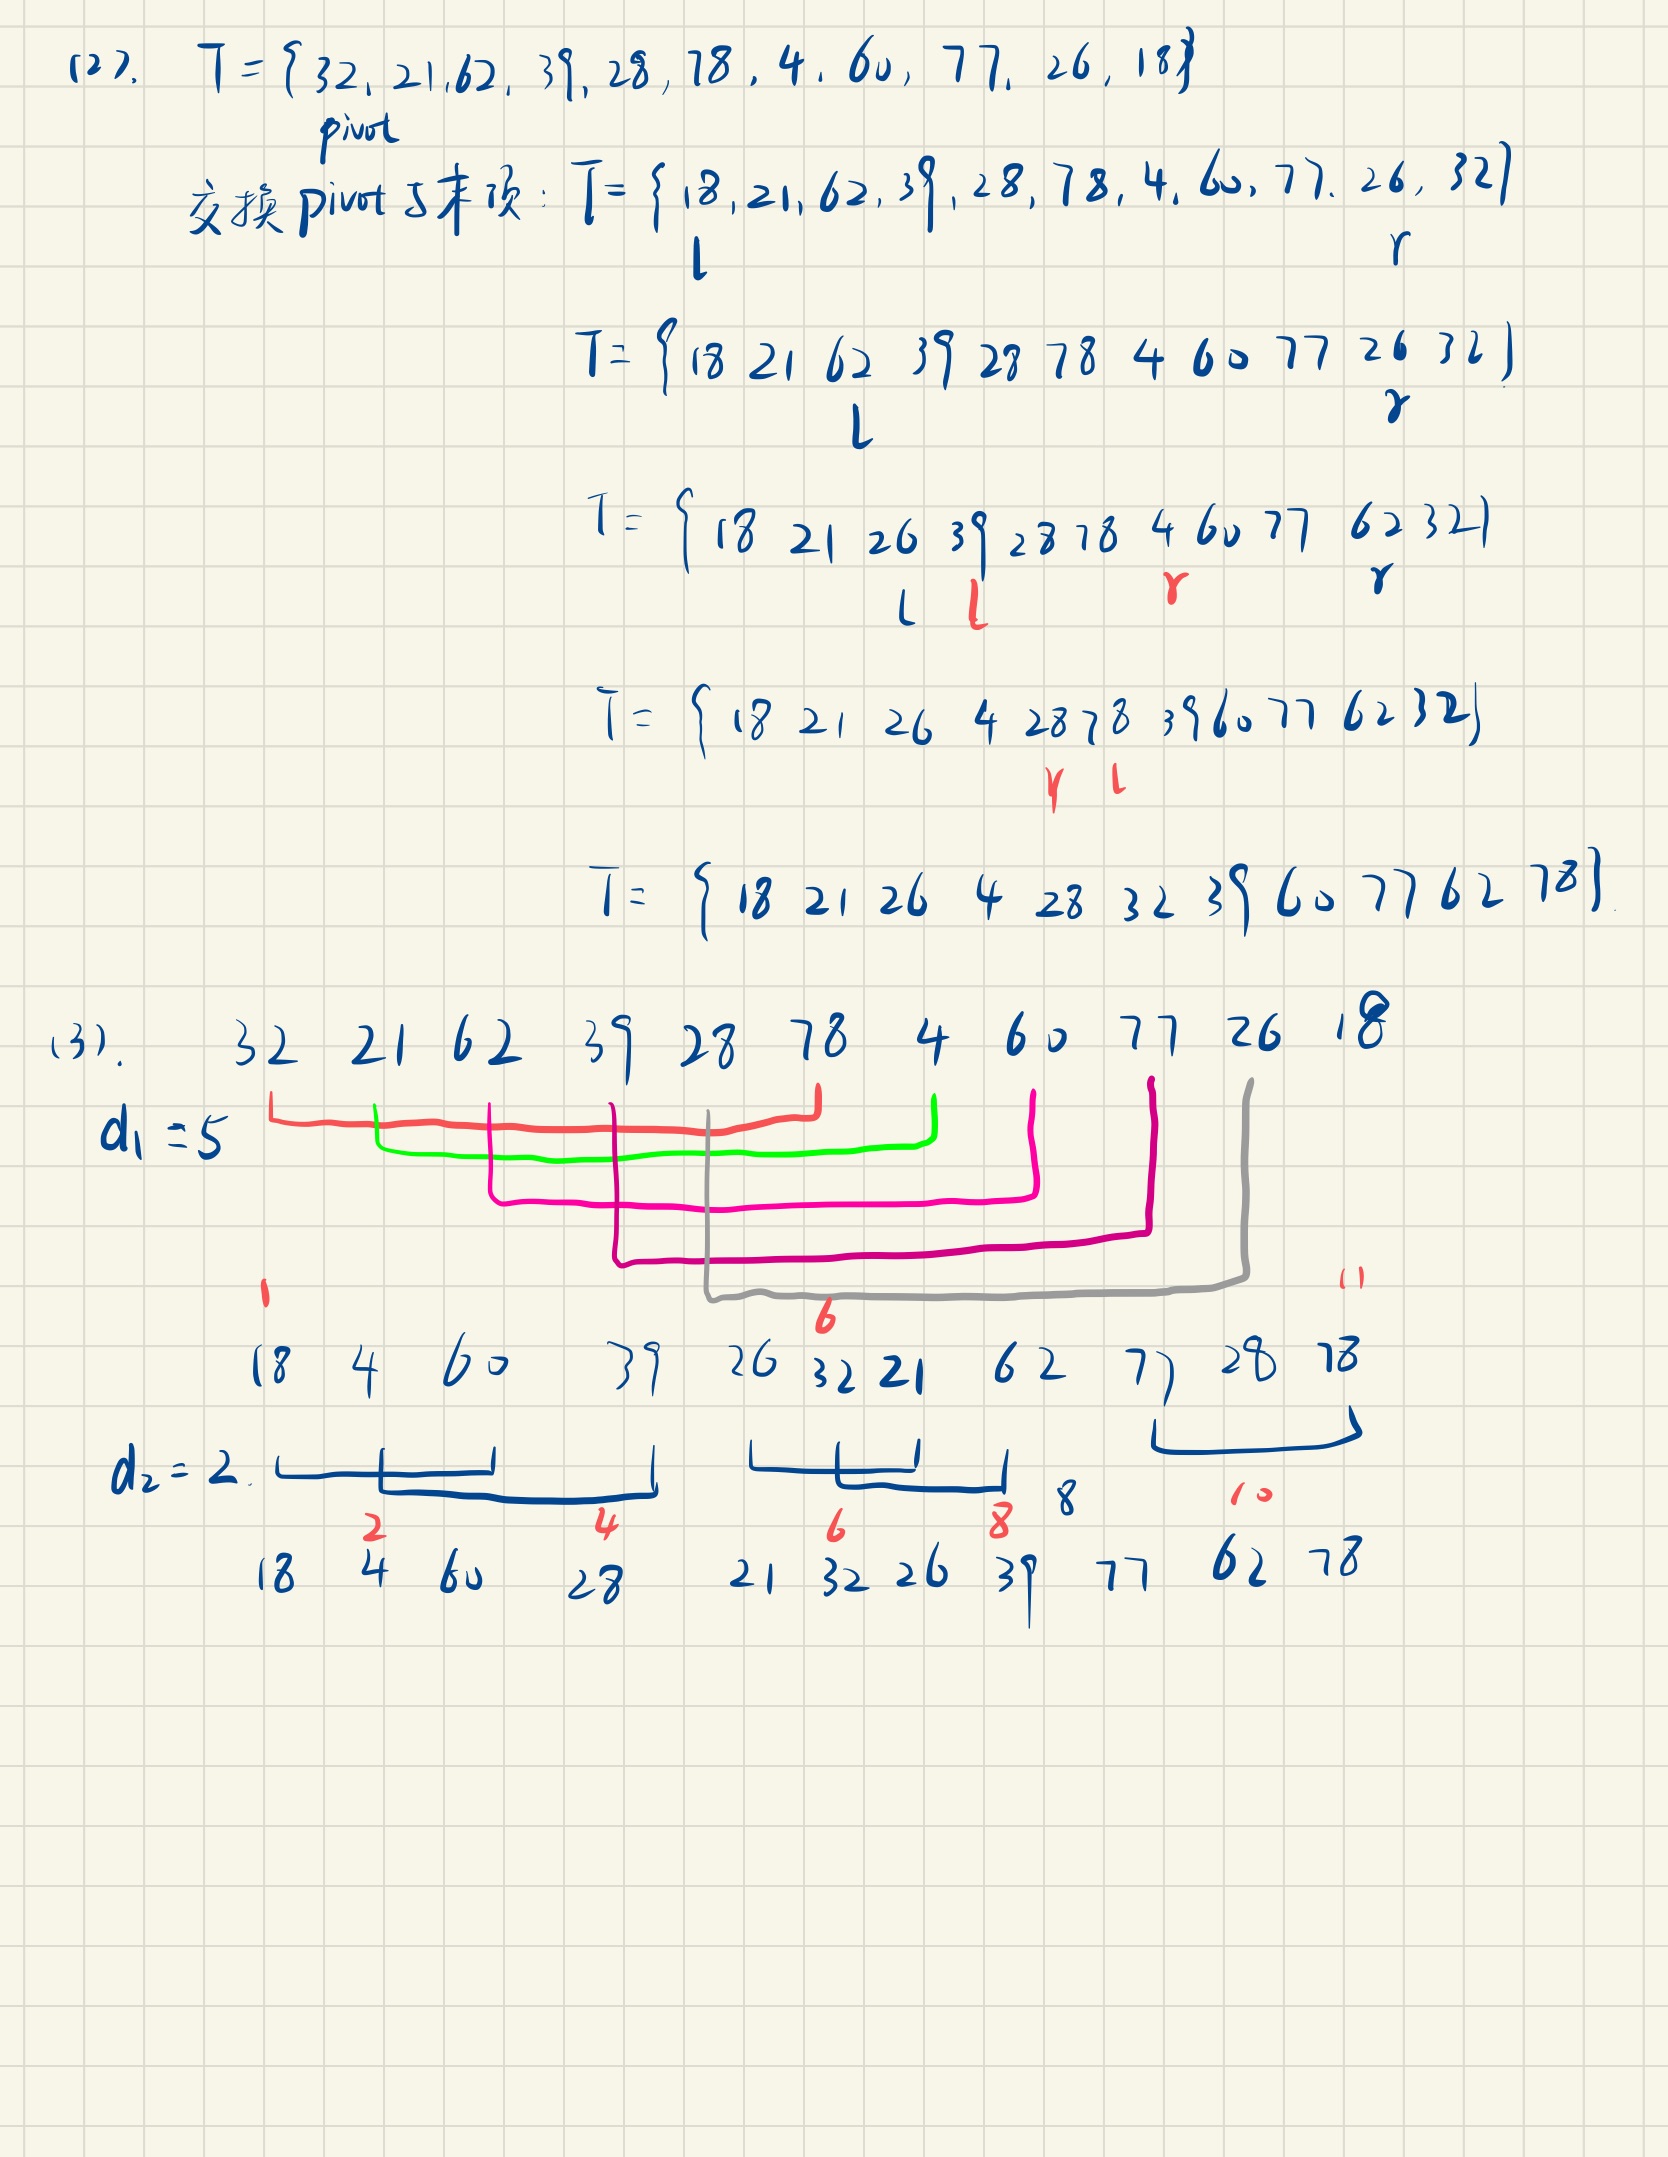 (2). T={32, 21, 62, 39, 28, 78, 4, 60, 77, 26, 18}
pivot
交换pivot与末项: T={18, 21, 62, 39, 28, 78, 4, 60, 77, 26, 32}
l r
T={18 21 62 39 28 78 4 60 77 26 32}
l r
T={18 21 26 39 28 78 4 60 77 62 32}
l l r r
T={18 21 26 4 28 78 39 60 77 62 32}
r l
T={18 21 26 4 28 32 39 60 77 62 78}
(3). 32 21 62 39 28 78 4 60 77 26 18
d₁=5
1 6 11
18 4 60 39 26 32 21 62 77 28 78
d₂=2.
2 4 6 8 8 10
18 4 60 28 21 32 26 39 77 62 78